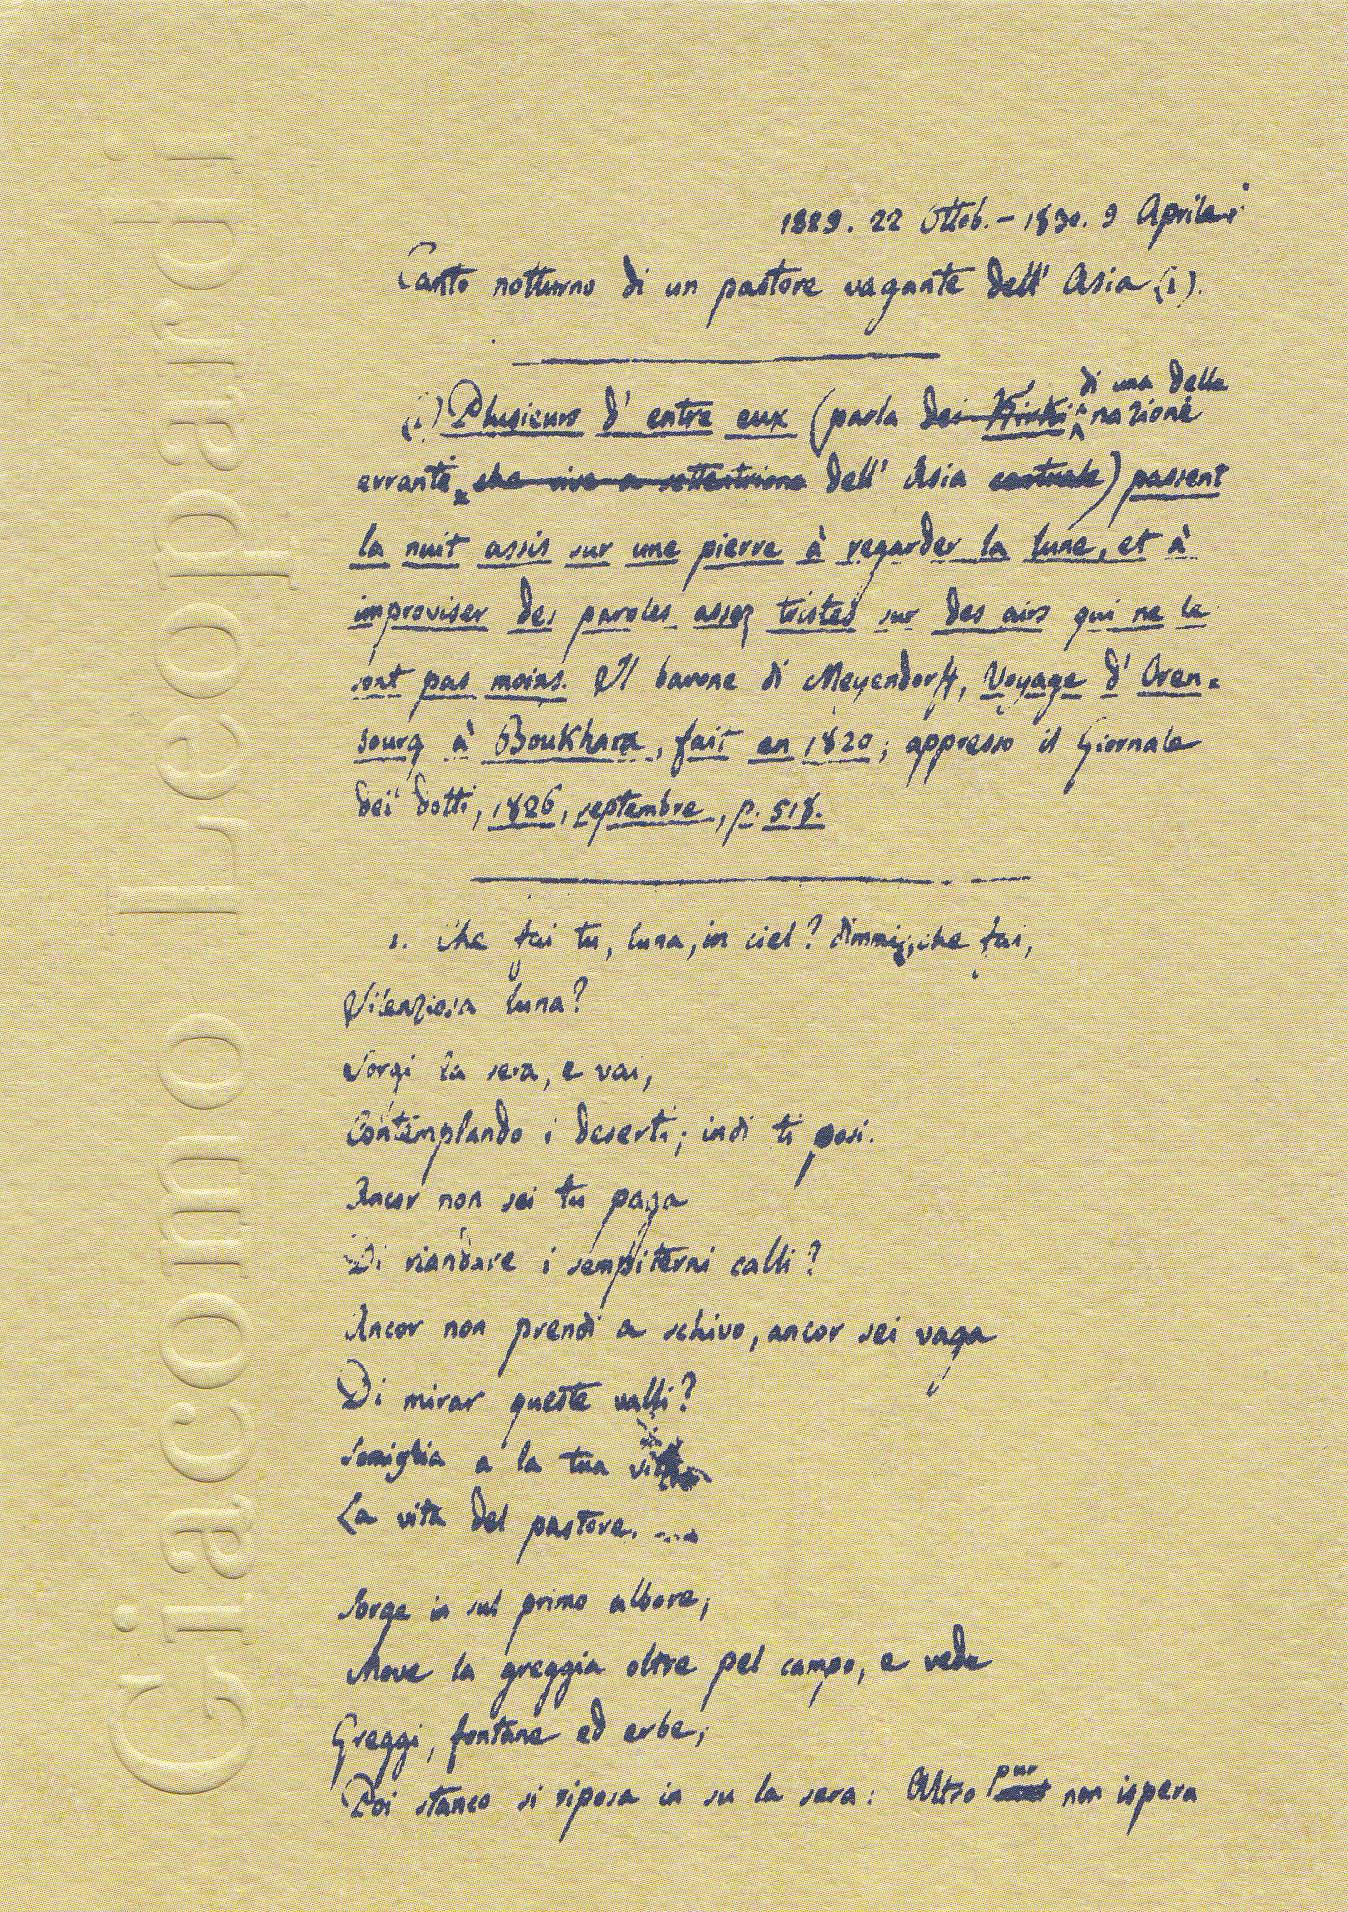 Giacomo Leopardi
1829. 22 Ottob. - 1830. 9 Aprile.
Canto notturno di un pastore vagante dell' Asia (1).
di una delle
(1) Plusieurs d' entre eux (parla dei Kirki nazioni
erranti che vive a settentrione dell' Asia centrale) passent
la nuit assis sur une pierre à regarder la lune, et à
improviser des paroles assez tristes sur des airs qui ne le
sont pas moins. Il barone di Meyendorff, Voyage d' Oren-
bourg à Boukhara, fait en 1820; appresso il Giornale
dei dotti, 1826, septembre, p. 518.
1. Che fai tu, luna, in ciel? dimmi, che fai,
Silenziosa luna?
Sorgi la sera, e vai,
Contemplando i deserti; indi ti posi.
Ancor non sei tu paga
Di riandare i sempiterni calli?
Ancor non prendi a schivo, ancor sei vaga
Di mirar queste valli?
Somiglia a la tua vita
La vita del pastore.
Sorge in sul primo albore;
Move la greggia oltre pel campo, e vede
Greggi, fontane ed erbe;
pur
Poi stanco si riposa in su la sera: Altro non ispera